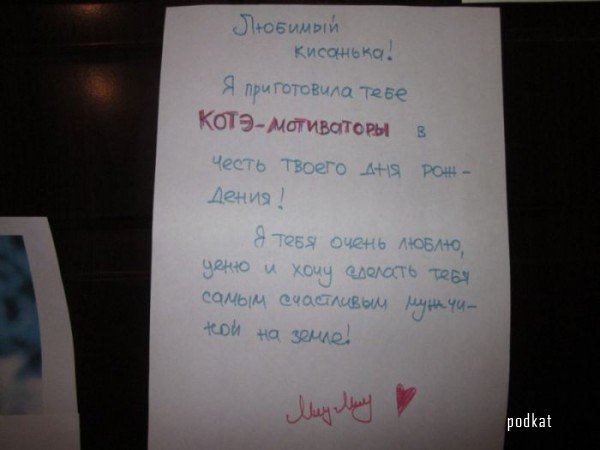 Любимый
кисанька!
Я приготовила тебе
КОТЭ-мотиваторы в
честь твоего дня рож-
дения!
Я тебя очень люблю,
ценю и хочу сделать тебя
самым счастливым мужчи-
ной на земле!
МиуМиу
podkat